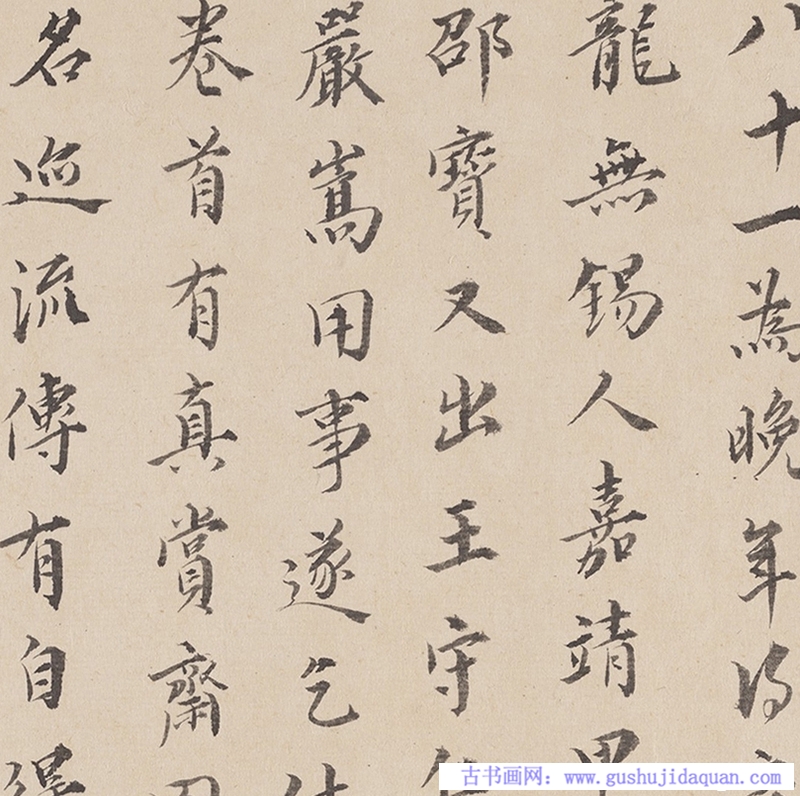 八十一為晚年得
龍無錫人嘉靖甲
邵寶又出王守仁
嚴嵩用事遂乞休
卷首有真賞齋印
名迹流傳有自得
古书画网：www.gushujidaquan.com